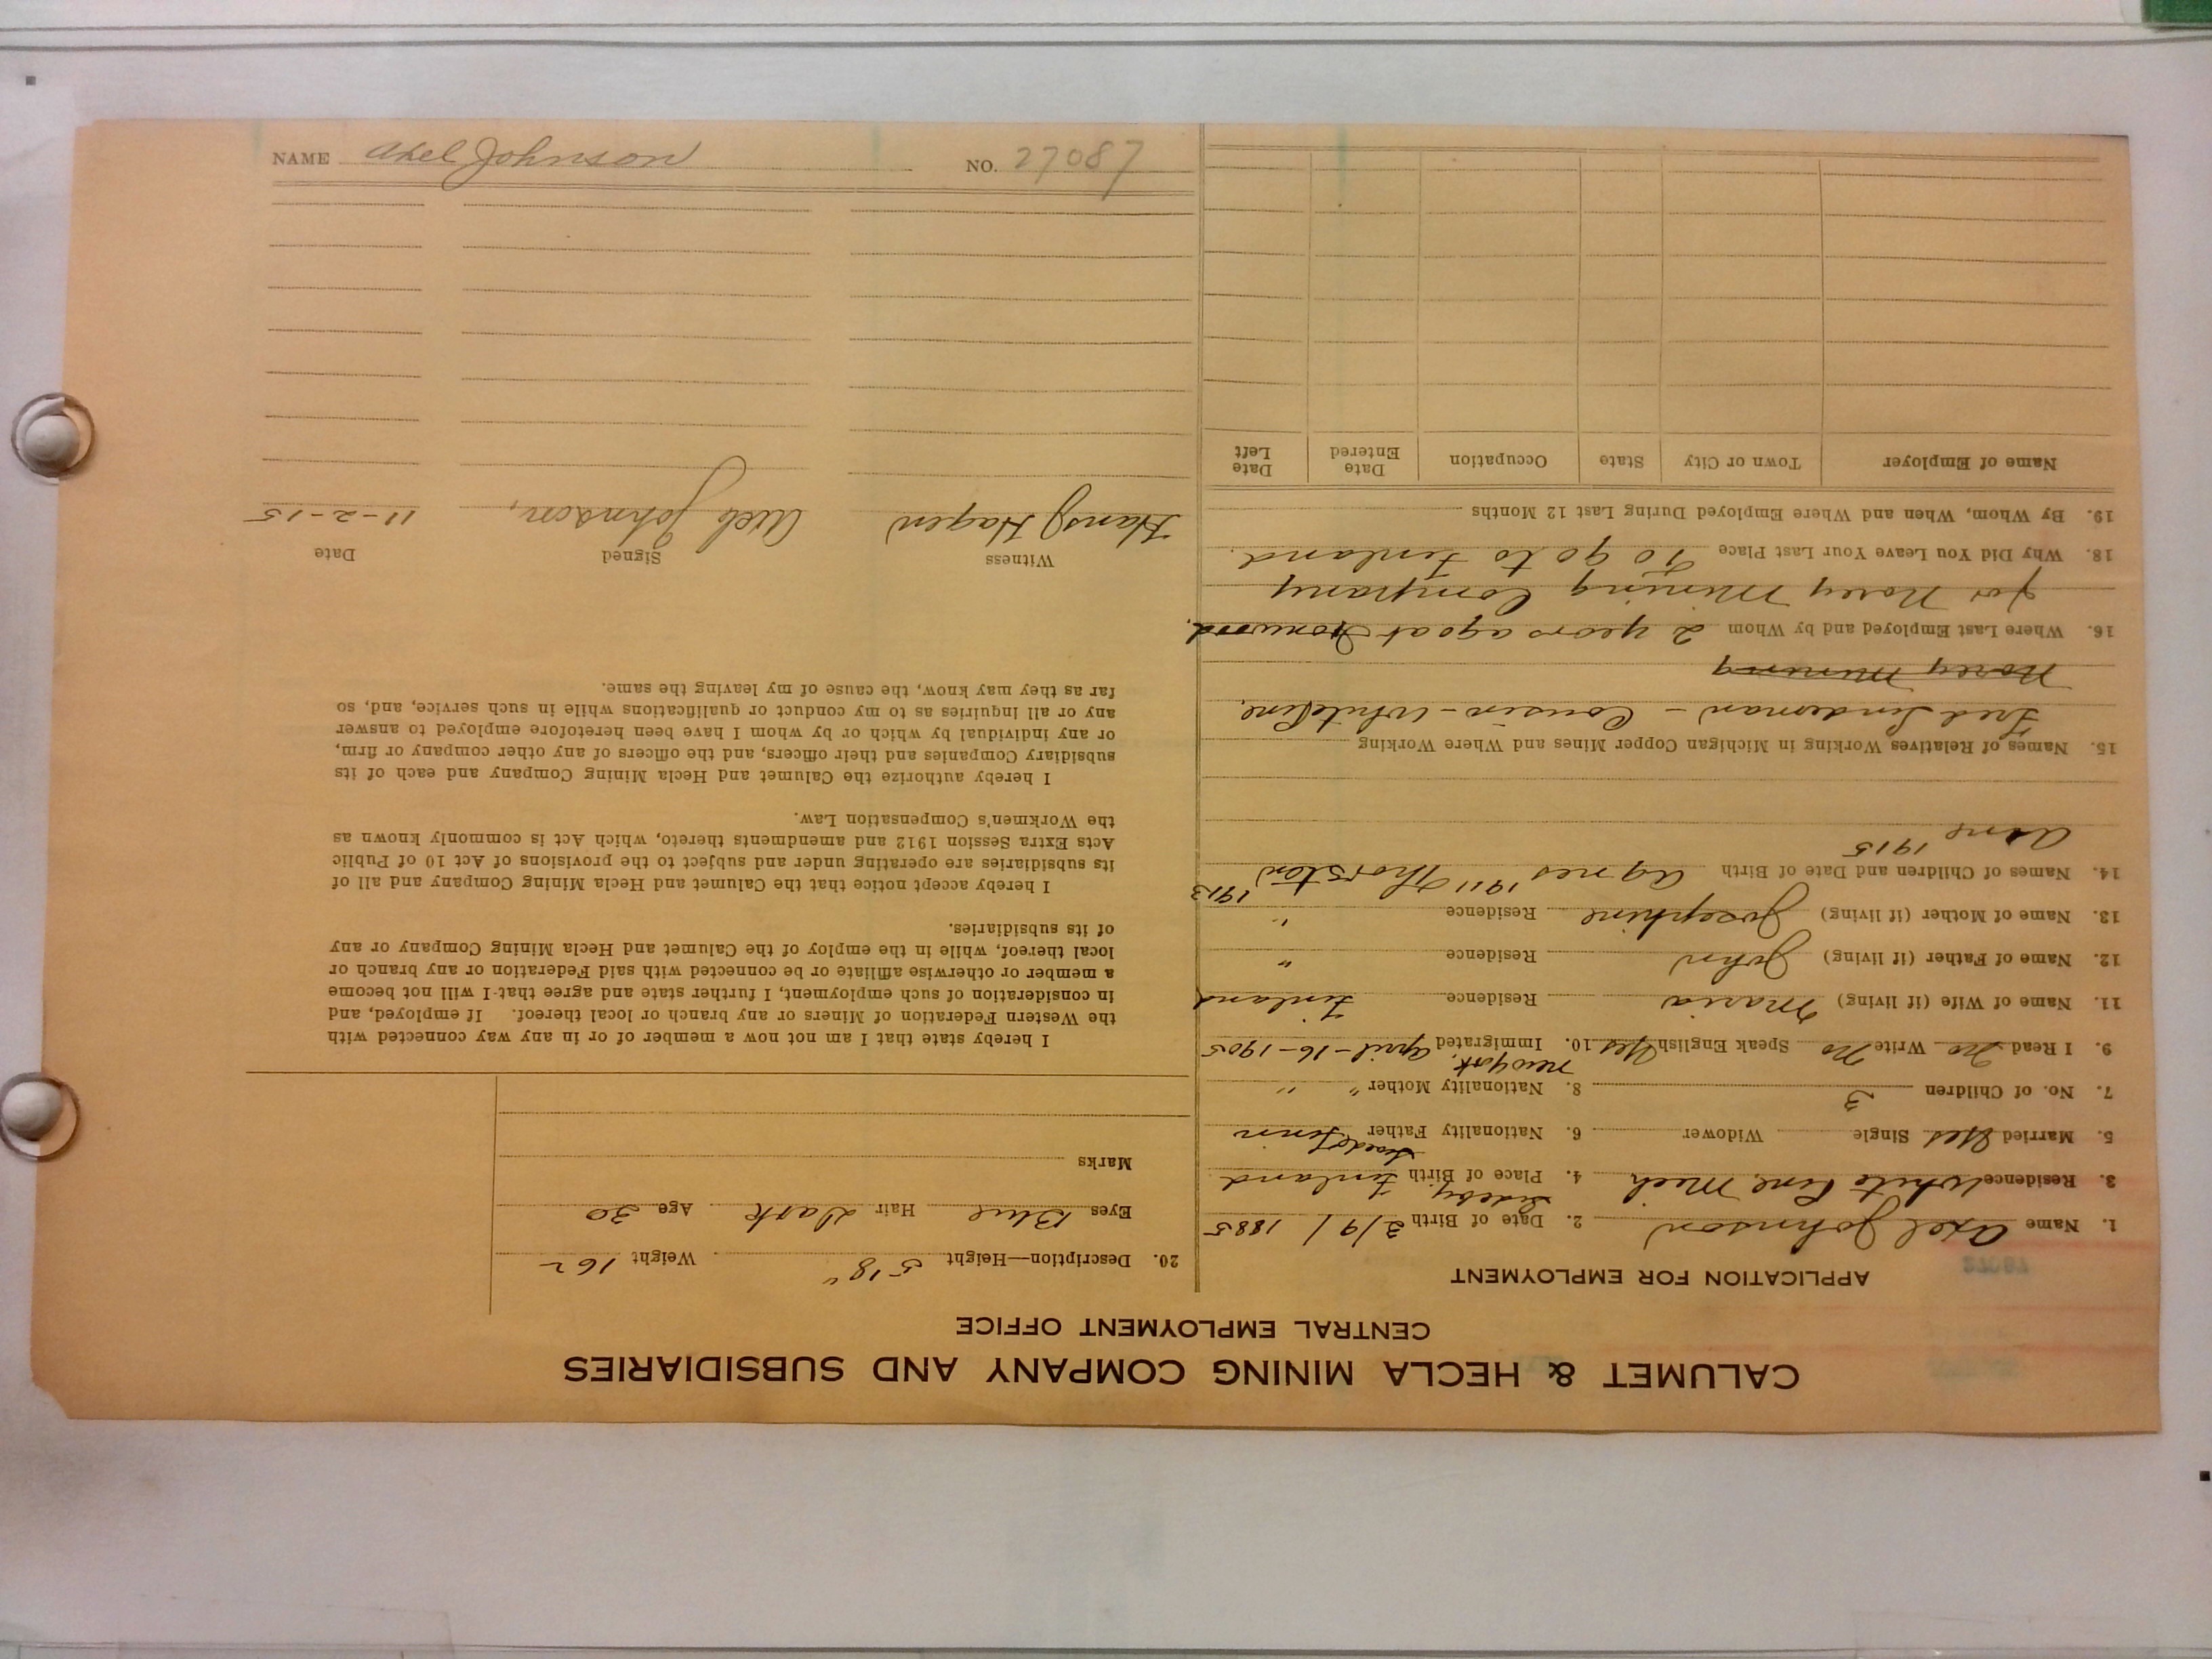 CALUMET & HECLA MINING COMPANY AND SUBSIDIARIES
CENTRAL EMPLOYMENT OFFICE
APPLICATION FOR EMPLOYMENT
1. Name Axel Johnson 2. Date of Birth 3/9/1885
3. Residence White Pine Mich 4. Place of Birth Sideby, Finland
5. Married Yes Single Widower 6. Nationality Father Swede Finn
7. No. of Children 3 8. Nationality Mother " "
9. I Read No Write No Speak English Yes 10. Immigrated New York, April-16-1905
11. Name of Wife (if living) Maria Residence Finland
12. Name of Father (if living) John Residence "
13. Name of Mother (if living) Josephine Residence "
14. Names of Children and Date of Birth Agnes 1911 Thorston 1913
1915
15. Names of Relatives Working in Michigan Copper Mines and Where Working
Fred Linderman - Cousin - White Pine.
Norey Mining
16. Where Last Employed and by Whom 2 years ago at Ironwood,
for Norey Mining Company
18. Why Did You Leave Your Last Place To go to Finland.
19. By Whom, When and Where Employed During Last 12 Months
Name of Employer Town or City State Occupation Date Entered Date Left
20. Description—Height 5'8" Weight 162
Eyes Blue Hair Dark Age 30
Marks
I hereby state that I am not now a member of or in any way connected with
the Western Federation of Miners or any branch or local thereof. If employed, and
in consideration of such employment, I further state and agree that I will not become
a member or otherwise affiliate or be connected with said Federation or any branch or
local thereof, while in the employ of the Calumet and Hecla Mining Company or any
of its subsidiaries.
I hereby accept notice that the Calumet and Hecla Mining Company and all of
its subsidiaries are operating under and subject to the provisions of Act 10 of Public
Acts Extra Session 1912 and amendments thereto, which Act is commonly known as
the Workmen's Compensation Law.
I hereby authorize the Calumet and Hecla Mining Company and each of its
subsidiary Companies and their officers, and the officers of any other company or firm,
or any individual by which or by whom I have been heretofore employed to answer
any or all inquiries as to my conduct or qualifications while in such service, and, so
far as they may know, the cause of my leaving the same.
Witness Signed Date
Hans J Hagen Axel Johnson, 11-2-15
NAME Axel Johnson NO. 27087